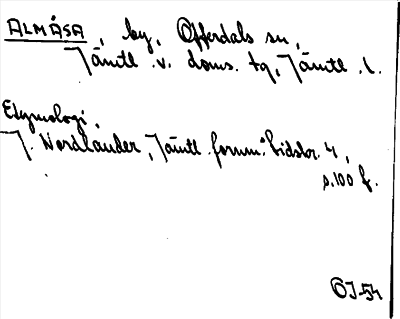 ALMÅSA, by, Offerdals sn,
Jämtl. v. doms. tg, Jämtl. l.
Etymologi,
J. Nordlander, Jämtl. fornm. tidskr. 4,
s. 100 f.
ÖJ-54